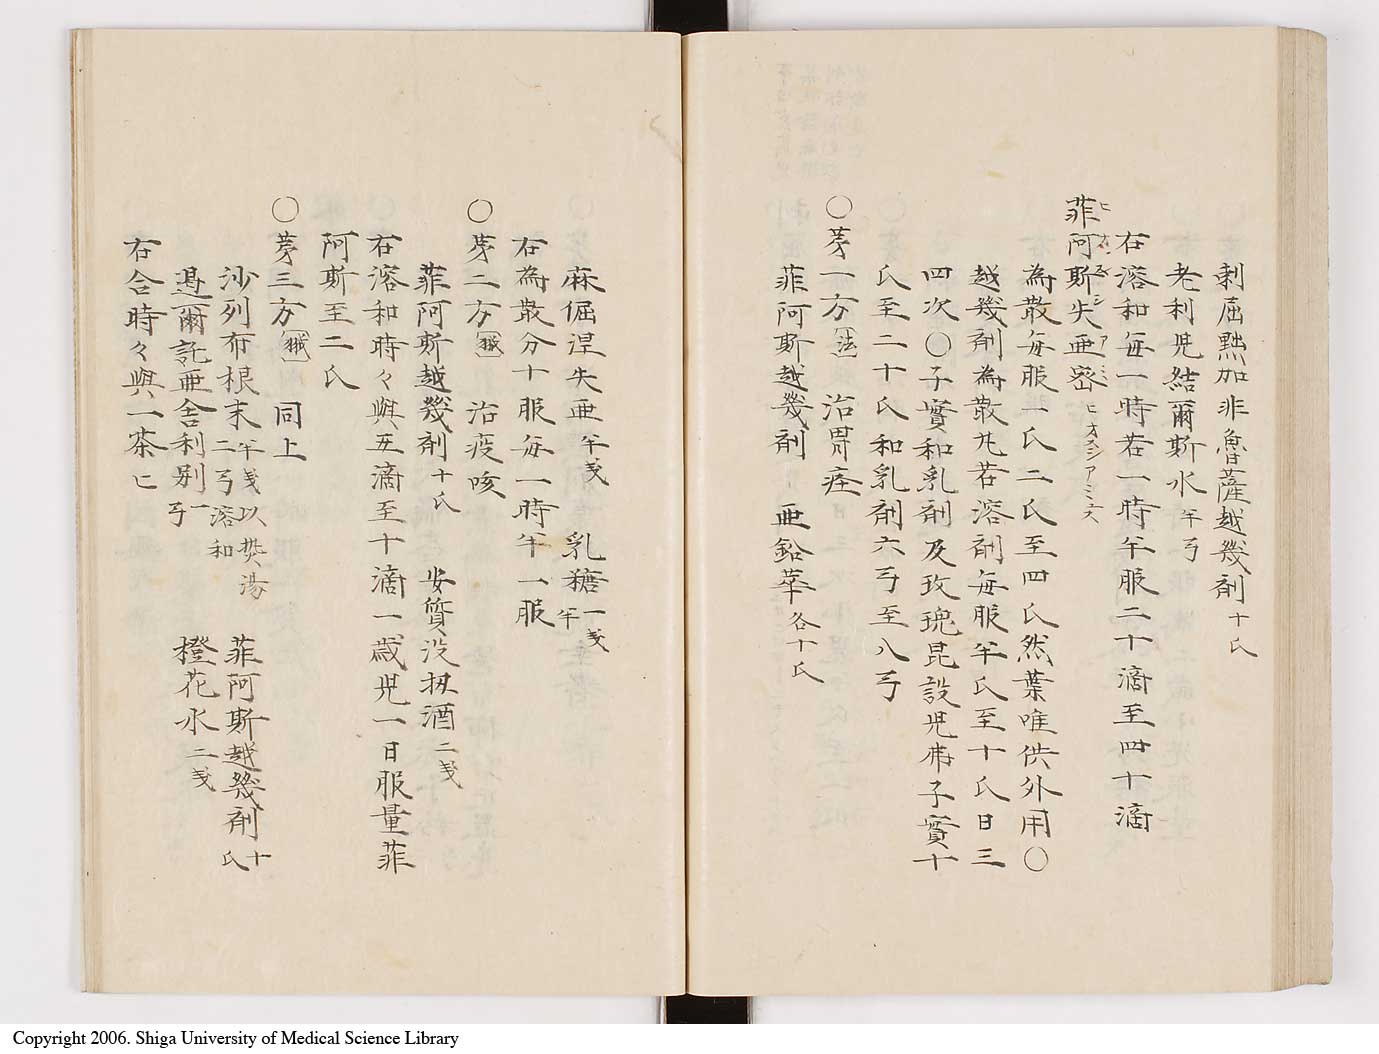 刺屈黙加非魯薩越幾剤十氏
老利児結爾斯水半弓
右溶和毎一時若一時半服二十滴至四十滴
菲阿斯失亜密ヒオシアミュス
為散毎服一氏二氏至四氏然葉唯供外用○
越幾剤為散丸若溶剤毎服半氏至十氏日三
四次○子實和乳剤及玫瑰昆設児弗子實十
氏至二十氏和乳剤六弓至八弓
○茅一方〔法〕治胃痙
菲阿斯越幾剤 亜鉛華各十氏
麻倔涅失亜半戔 乳糖一戔半
右為散分十服毎一時半一服
○茅二方〔猴〕治痰咳
菲阿斯越幾剤十氏 安質没扭酒二戔
右溶和時々與五滴至十滴一歳児一日服量菲
阿斯至二氏
○茅三方〔猴〕同上
沙列布根末半戔以熱湯二弓溶和 菲阿斯越幾剤十氏
亜爾託亜舎利別一弓 橙花水二戔
右合時々與一茶匕
Copyright 2006. Shiga University of Medical Science Library